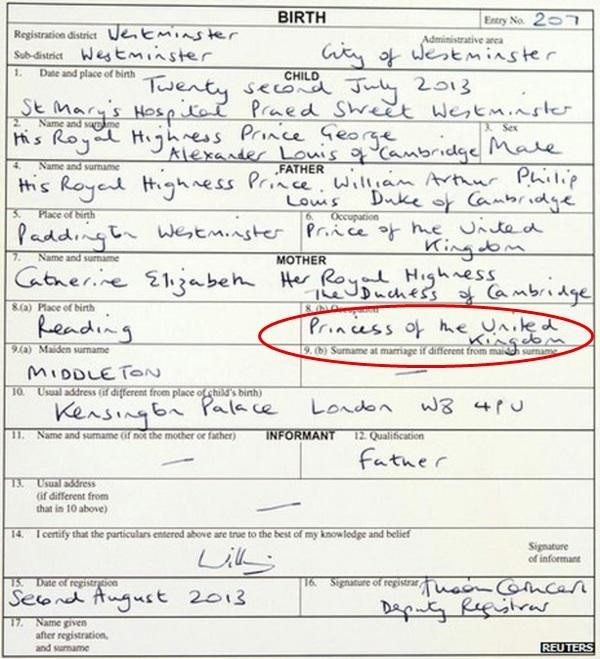 BIRTH
Entry No. 207
Registration district Westminster
Administrative area
Sub-district Westminster
City of Westminster
1. Date and place of birth
CHILD
Twenty second July 2013
St Mary's Hospital Praed Street Westminster
2. Name and surname
His Royal Highness Prince George
Alexander Louis of Cambridge
3. Sex
Male
4. Name and surname
FATHER
His Royal Highness Prince William Arthur Philip
Louis Duke of Cambridge
5. Place of birth
Paddington Westminster
6. Occupation
Prince of the United
Kingdom
7. Name and surname
MOTHER
Catherine Elizabeth Her Royal Highness
The Duchess of Cambridge
8.(a) Place of birth
Reading
8. (b) Occupation
Princess of the United
Kingdom
9.(a) Maiden surname
MIDDLETON
9. (b) Surname at marriage if different from maiden surname
—
10. Usual address (if different from place of child's birth)
Kensington Palace London W8 4PU
11. Name and surname (if not the mother or father)
INFORMANT
—
12. Qualification
Father
13. Usual address
(if different from
that in 10 above)
—
14. I certify that the particulars entered above are true to the best of my knowledge and belief
Signature
of informant
15. Date of registration
Second August 2013
16. Signature of registrar
Deputy Registrar
17. Name given
after registration,
and surname
REUTERS